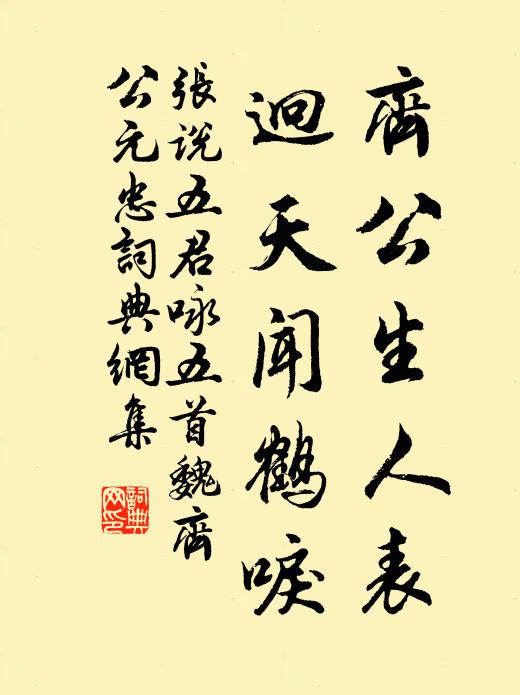 齊公生人表
迥天聞鶴唳
張說五君咏五首魏齊
公元忠詞典網集
詞典
网印